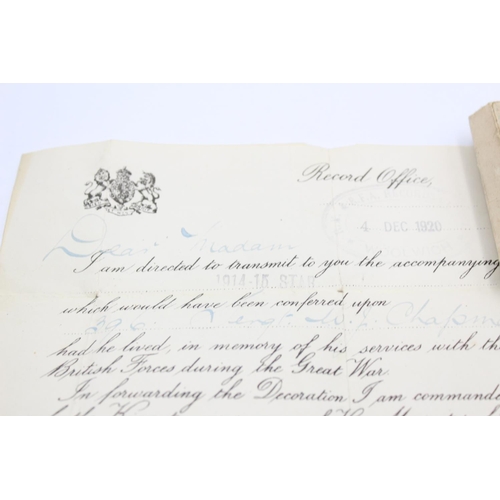 Record Office,
4 DEC 1920
Dear Madam
I am directed to transmit to you the accompanying
1914-15 STAR
which would have been conferred upon
Sergt W. J. Chapm
had he lived, in memory of his services with the
British Forces during the Great War.
In forwarding the Decoration I am commande